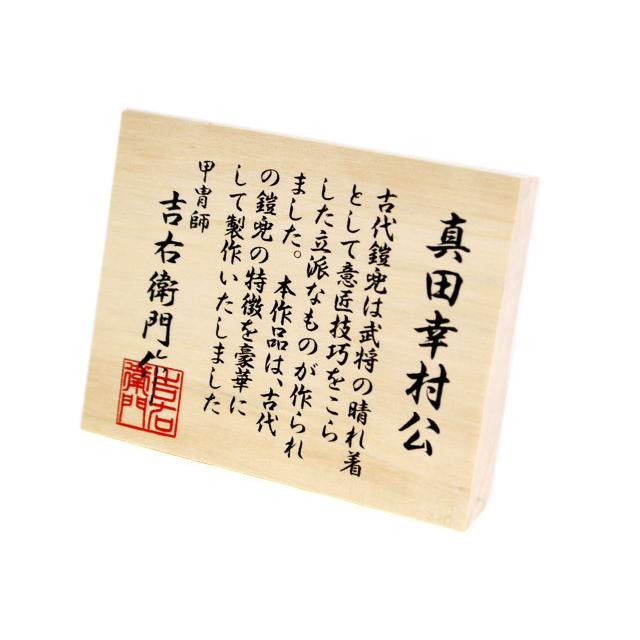 真田幸村公
古代鎧兜は武将の晴れ着
として意匠技巧をこら
した立派なものが作られ
ました。本作品は、古代
の鎧兜の特徴を豪華に
して製作いたしました
甲冑師
吉右衛門作
吉右
衛門